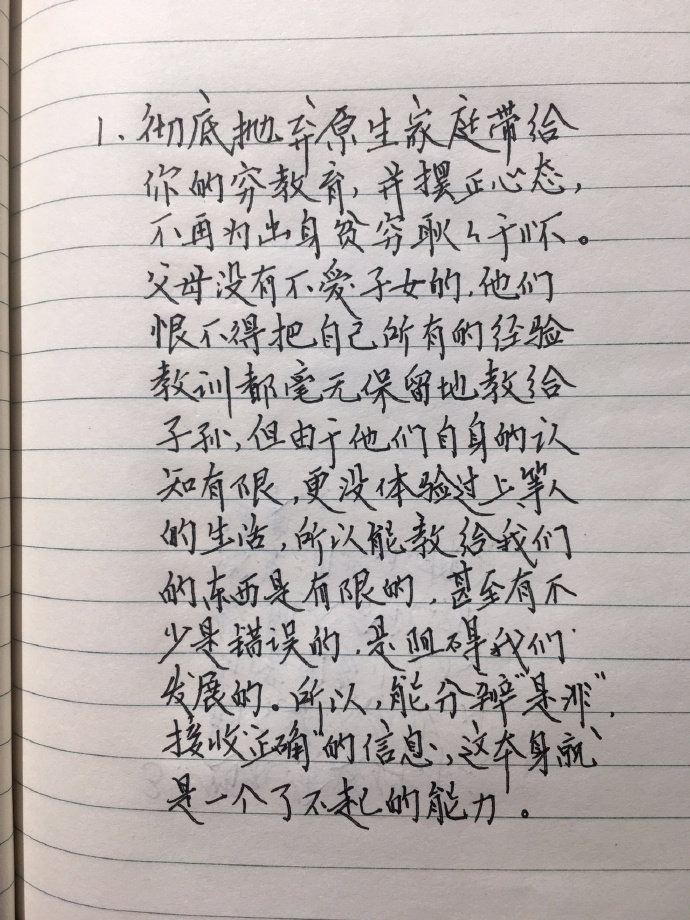 1、彻底抛弃原生家庭带给
你的穷教育,并摆正心态,
不再为出身贫穷耿々于怀。
父母没有不爱子女的,他们
恨不得把自己所有的经验
教训都毫无保留地教给
子孙,但由于他们自身的认
知有限,更没体验过上等人
的生活,所以能教给我们
的东西是有限的,甚至有不
少是错误的,是阻碍我们
发展的。所以,能分辨"是非",
接收"正确"的信息,这本身就
是一个了不起的能力。